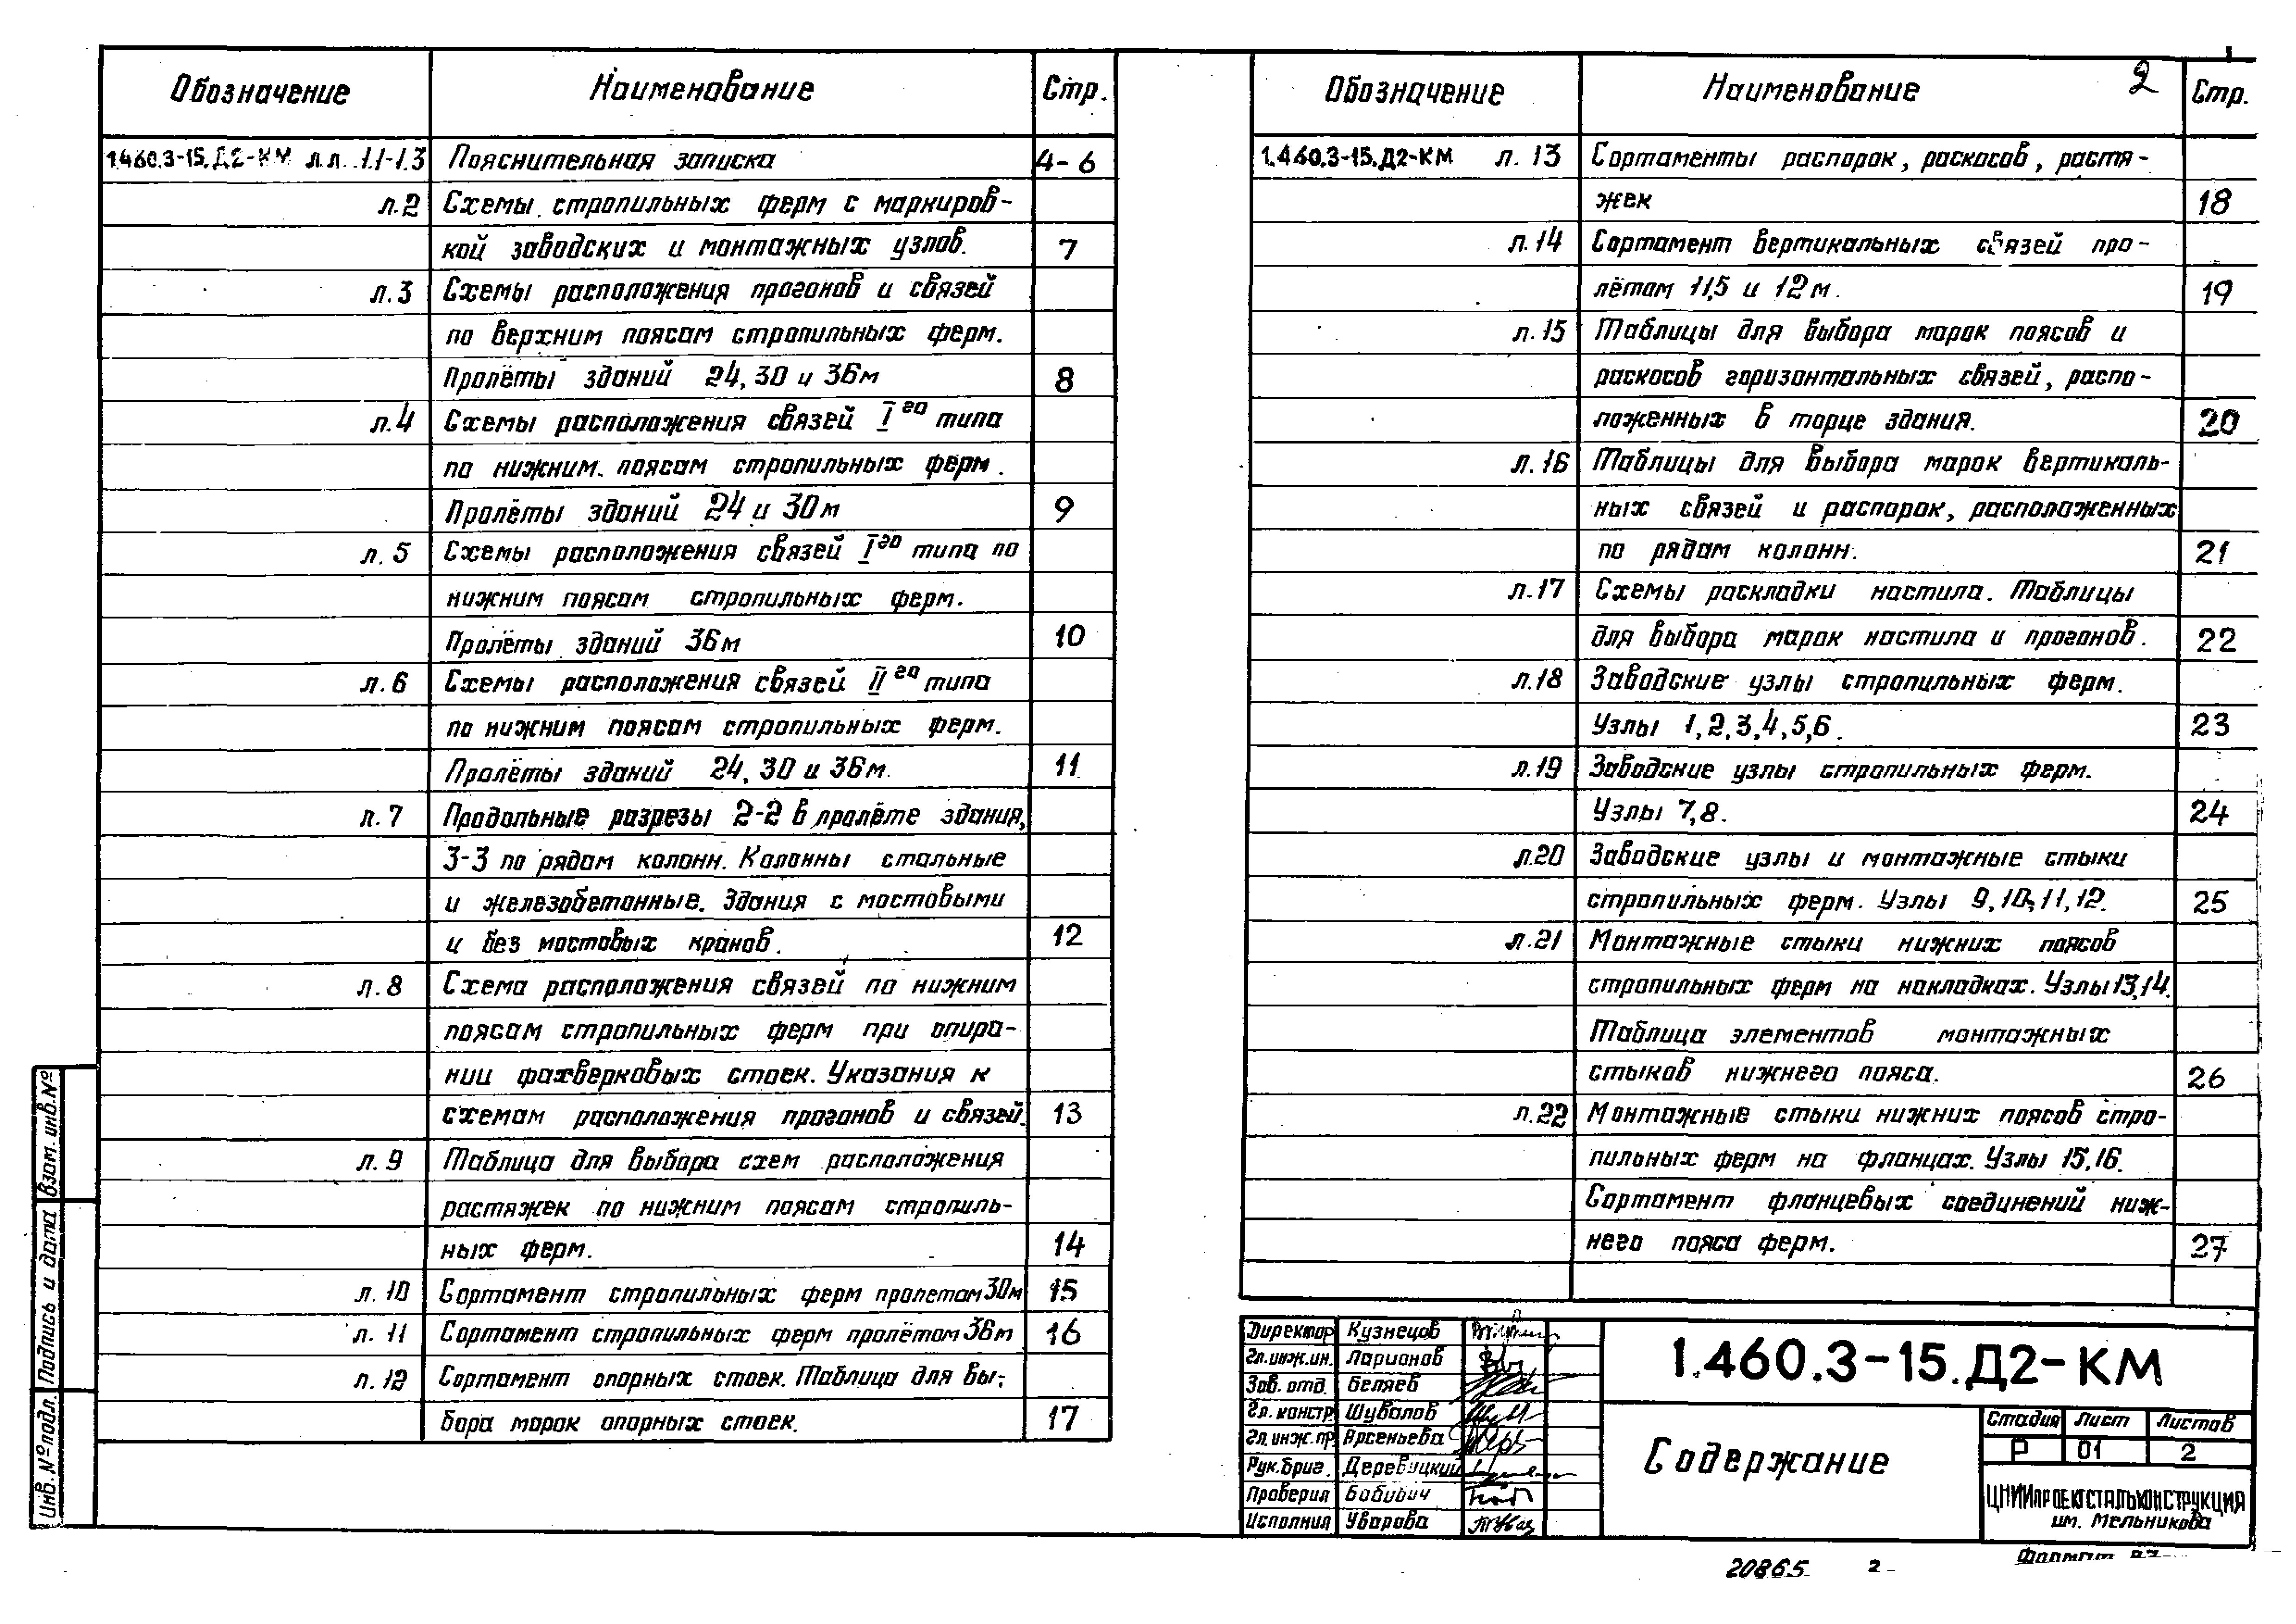 2
Обозначение Наименование Стр.
1.460.3-15.Д2-КМ л.л. 1.1-1.3 Пояснительная записка 4-6
л.2 Схемы стропильных ферм с маркиров-
кой заводских и монтажных узлов. 7
л.3 Схемы расположения прогонов и связей
по верхним поясам стропильных ферм.
Пролёты зданий 24, 30 и 36м 8
л.4 Схемы расположения связей I го типа
по нижним поясам стропильных ферм.
Пролёты зданий 24 и 30м 9
л.5 Схемы расположения связей I го типа по
нижним поясам стропильных ферм.
Пролёты зданий 36м 10
л.6 Схемы расположения связей II го типа
по нижним поясам стропильных ферм.
Пролёты зданий 24, 30 и 36м. 11
л.7 Продольные разрезы 2-2 в пролёте здания,
3-3 по рядам колонн. Колонны стальные
и железобетонные. Здания с мостовыми
и без мостовых кранов. 12
л.8 Схема расположения связей по нижним
поясам стропильных ферм при опира-
нии фахверковых стоек. Указания к
схемам расположения прогонов и связей. 13
л.9 Таблица для выбора схем расположения
растяжек по нижним поясам стропиль-
ных ферм. 14
л.10 Сортамент стропильных ферм пролетом 30м 15
л.11 Сортамент стропильных ферм пролётом 36м 16
л.12 Сортамент опорных стоек. Таблица для вы-
бора марок опорных стоек. 17
Обозначение Наименование Стр.
1.460.3-15.Д2-КМ л.13 Сортаменты распорок, раскосов, растя-
жек 18
л.14 Сортамент вертикальных связей про-
лётом 11,5 и 12м. 19
л.15 Таблицы для выбора марок поясов и
раскосов горизонтальных связей, распо-
ложенных в торце здания. 20
л.16 Таблицы для выбора марок вертикаль-
ных связей и распорок, расположенных
по рядам колонн. 21
л.17 Схемы раскладки настила. Таблицы
для выбора марок настила и прогонов. 22
л.18 Заводские узлы стропильных ферм.
Узлы 1,2,3,4,5,6. 23
л.19 Заводские узлы стропильных ферм.
Узлы 7,8. 24
л.20 Заводские узлы и монтажные стыки
стропильных ферм. Узлы 9,10,11,12. 25
л.21 Монтажные стыки нижних поясов
стропильных ферм на накладках. Узлы 13,14.
Таблица элементов монтажных
стыков нижнего пояса. 26
л.22 Монтажные стыки нижних поясов стро-
пильных ферм на фланцах. Узлы 15,16.
Сортамент фланцевых соединений ниж-
него пояса ферм. 27
Директор Кузнецов
Гл.инж.ин. Ларионов
Зав. отд. Беляев
Гл. констр Шувалов
Гл.инж.пр. Арсеньева
Рук.бриг. Деревицкий
Проверил Бабович
Исполнил Уварова
1.460.3-15.Д2-КМ
Содержание
Стадия Лист Листов
Р 01 2
ЦНИИПРОЕКТСТАЛЬКОНСТРУКЦИЯ
им. Мельникова
20865 2
Формат
Взам. инв.№
Подпись и дата
Инв.№подл.